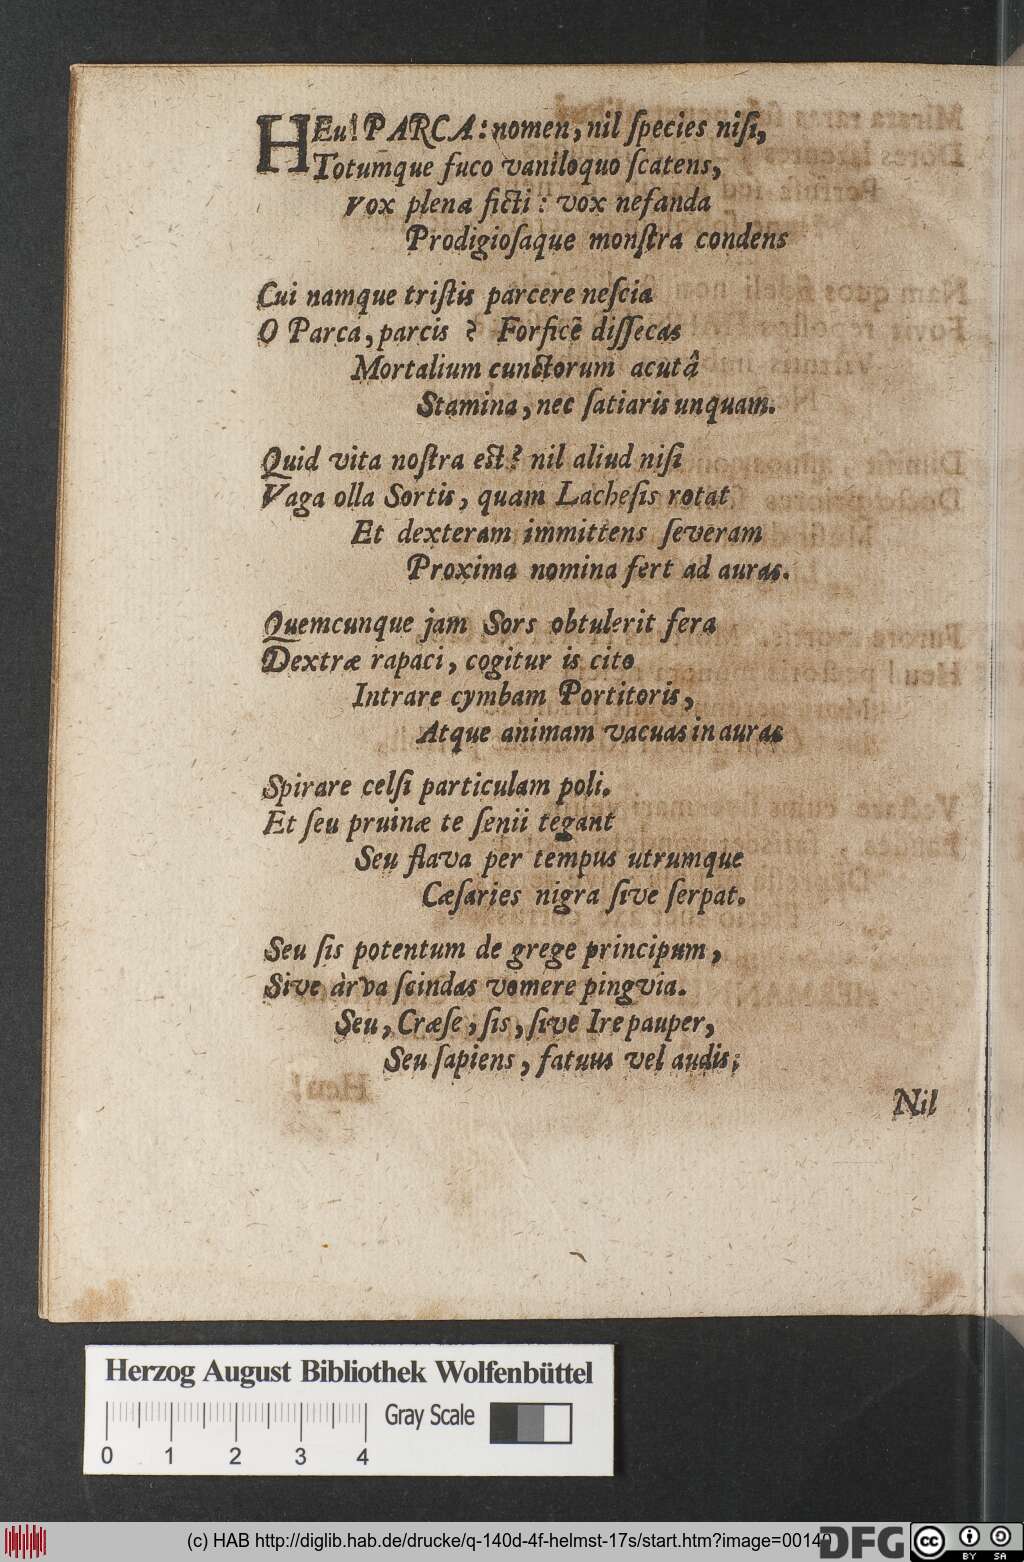 HEu! PARCA: nomen, nil ſpecies niſi,
Totumque fuco vaniloquo ſcatens,
Vox plena ficti: vox nefanda
Prodigioſaque monſtra condens
Cui namque triſtis parcere neſcia
O Parca, parcis? Forficê diſſecas
Mortalium cunctorum acutâ
Stamina, nec ſatiaris unquam.
Quid vita noſtra eſt? nil aliud niſi
Vaga olla Sortis, quam Lacheſis rotat
Et dexteram immittens ſeveram
Proxima nomina fert ad auras.
Quemcunque jam Sors obtulerit fera
Dextræ rapaci, cogitur is cito
Intrare cymbam Portitoris,
Atque animam vacuas in auras
Spirare celſi particulam poli.
Et ſeu pruinæ te ſenii tegant
Seu flava per tempus utrumque
Cæſaries nigra ſive ſerpat.
Seu ſis potentum de grege principum,
Sive àrva ſcindas vomere pingvia.
Seu, Cræſe, ſis, ſive Ire pauper,
Seu ſapiens, fatuus vel audis;
Nil
Herzog August Bibliothek Wolfenbüttel
Gray Scale
0 1 2 3 4
(c) HAB http://diglib.hab.de/drucke/q-140d-4f-helmst-17s/start.htm?image=00140
DFG
cc BY SA